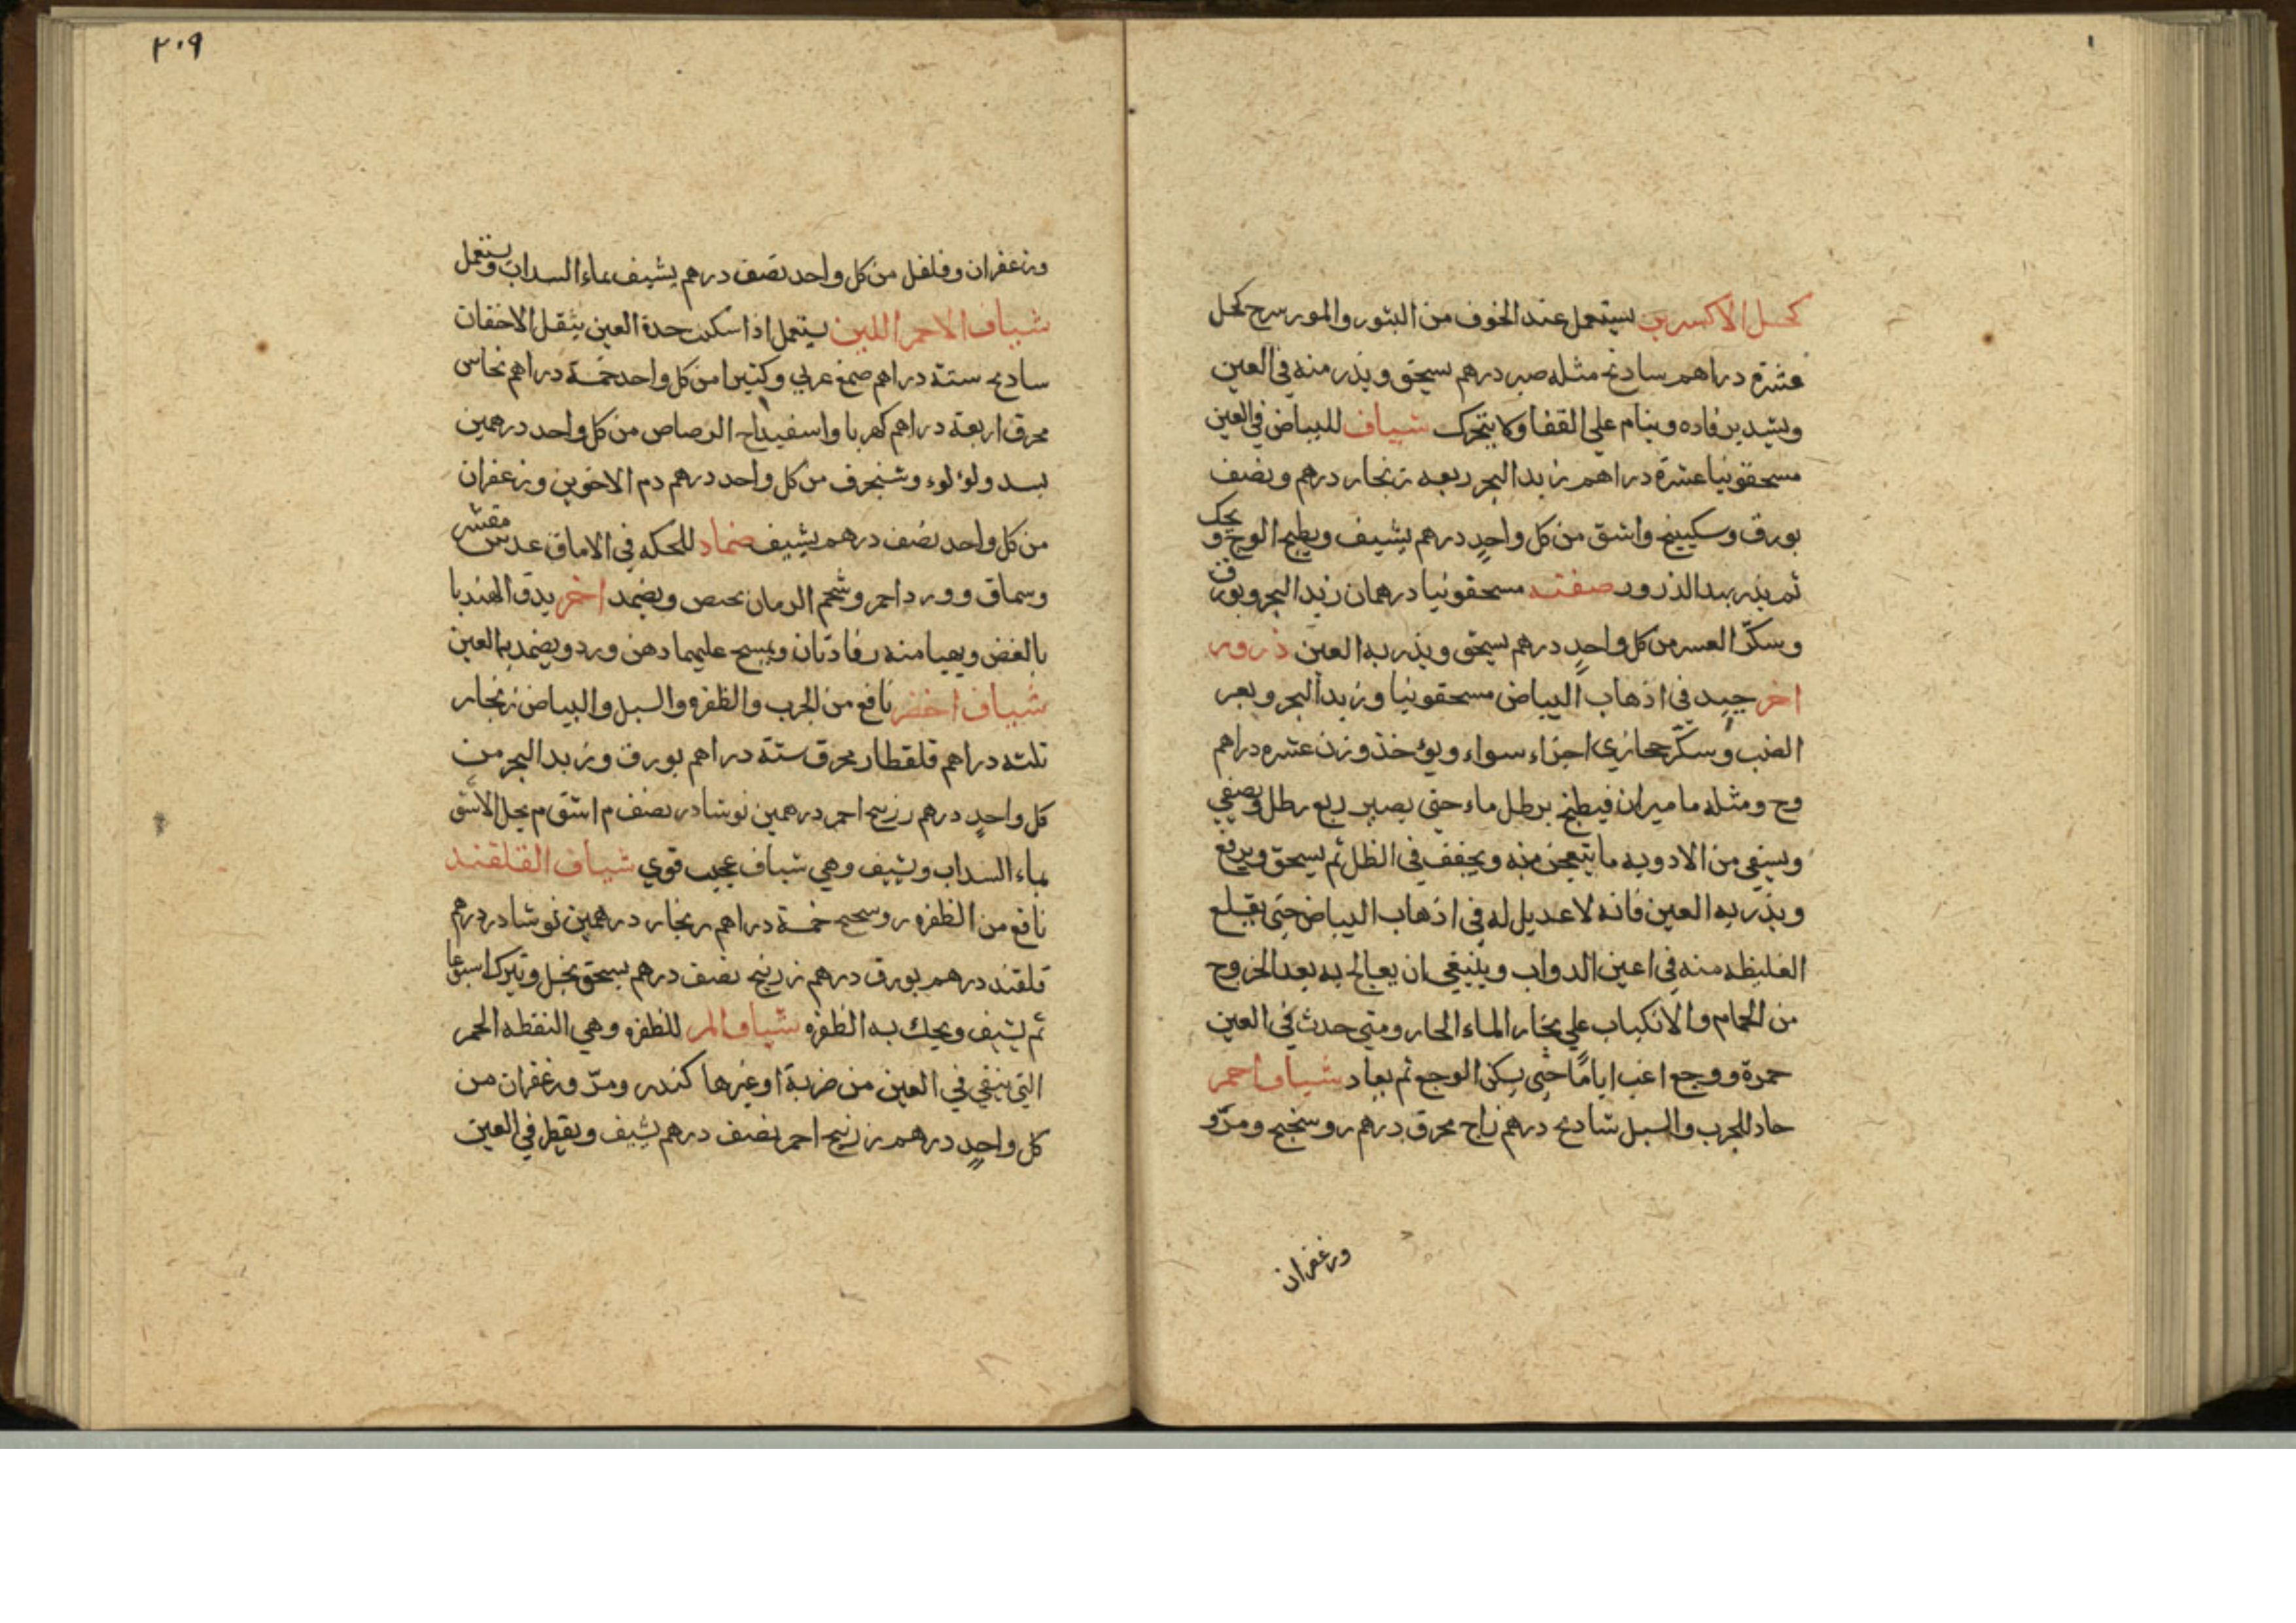 كحل الاكسرين يستعمل عند الخوف من البثور والمورسرج كحل
عشرة دراهم سادنج مثله صبر درهم يسحق ويذر منه في العين
ويشد برفاده وينام علي القفا ولا يتحرك شياف للبياض في العين
مسحقونيا عشرة دراهم زبد البحر ربعه زنجار درهم ونصف
بورق وسكبينج واشق من كل واحدٍ درهم يشيف ويطبخ الوج ويحك
ثم يذر بهذا الذرور صفته مسحقونيا درهمان زبد البحر وبورق
وسكّر العسر من كل واحدٍ درهم يسحق ويذر به العين ذرور
اخر جيد في اذهاب البياض مسحقونيا وزبد البحر وبعر
الضب وسكّر حجازي اجزاء سواء ويؤخذ وزن عشره دراهم
وج ومثله ماميران فيطبخ برطل ماء حتي يصير ربع رطل ويصفي
ويسقي من الادويه ما يتعجن منه ويجفف في الظل ثم يسحق ويرفع
ويذر به العين فانه لا عديل له في اذهاب البياض حتي يقلع
الغليظه منه في اعين الدواب وينبغي ان يعالج به بعد الخروج
من الحمام والانكباب علي بخار الماء الحار ومتي حدث في العين
حمرة ووجع اغب اياماً حتي يسكن الوجع ثم يعاد شياف احمر
حاد للجرب والسبل شادنج درهم زاج محرق درهم روسختج ومرّ و
وزعفران
٢٠٩
وزعفران وفلفل من كل واحد نصف درهم يشيف بماء السداب ويستعمل
شياف الاحمر اللين يستعمل اذا سكنت حدة العين بثقل الاجفان
سادنج ستة دراهم صمغ عربي وكثيرا من كل واحد خمسة دراهم نحاس
محرق اربعة دراهم كهربا واسفيداج الرصاص من كل واحد درهمين
بسد ولؤلوء وشنجرف من كل واحد درهم دم الاخوين وزعفران
من كل واحد نصف درهم يشيف ضماد للحكه في الاماق عدس مقشر
وسماق وورد احمر وشحم الرمان بحصص ويضمد اخر يدق الهندبا
بالغض ويهيا منه رفادتان ويمسح عليهما دهن ورد ويضمد بها العين
شياف اخضر نافع من الجرب والظفره والسبل والبياض زنجار
ثلثه دراهم قلقطار محرق ستة دراهم بورق وزبد البحر من
كل واحدٍ درهم زرنيخ احمر درهمين نوشادر نصف م اشق م يحل الاشق
بماء السداب ويشيف وهي شياف عجيب قوي شياف القلقند
نافع من الظفره روسختج خمسة دراهم زنجار درهمين نوشادر درهم
قلقند درهم بورق درهم زرنيخ نصف درهم يسحق بخل ويترك اسبوعا
ثم يشيف ويحك به الظفره شياف المر للظفره وهي النقطه الحمر
التي تبقي في العين من ضربة او غيرها كندر ومرّ وزعفران من
كل واحدٍ درهم زرنيخ احمر نصف درهم يشيف ويقطر في العين